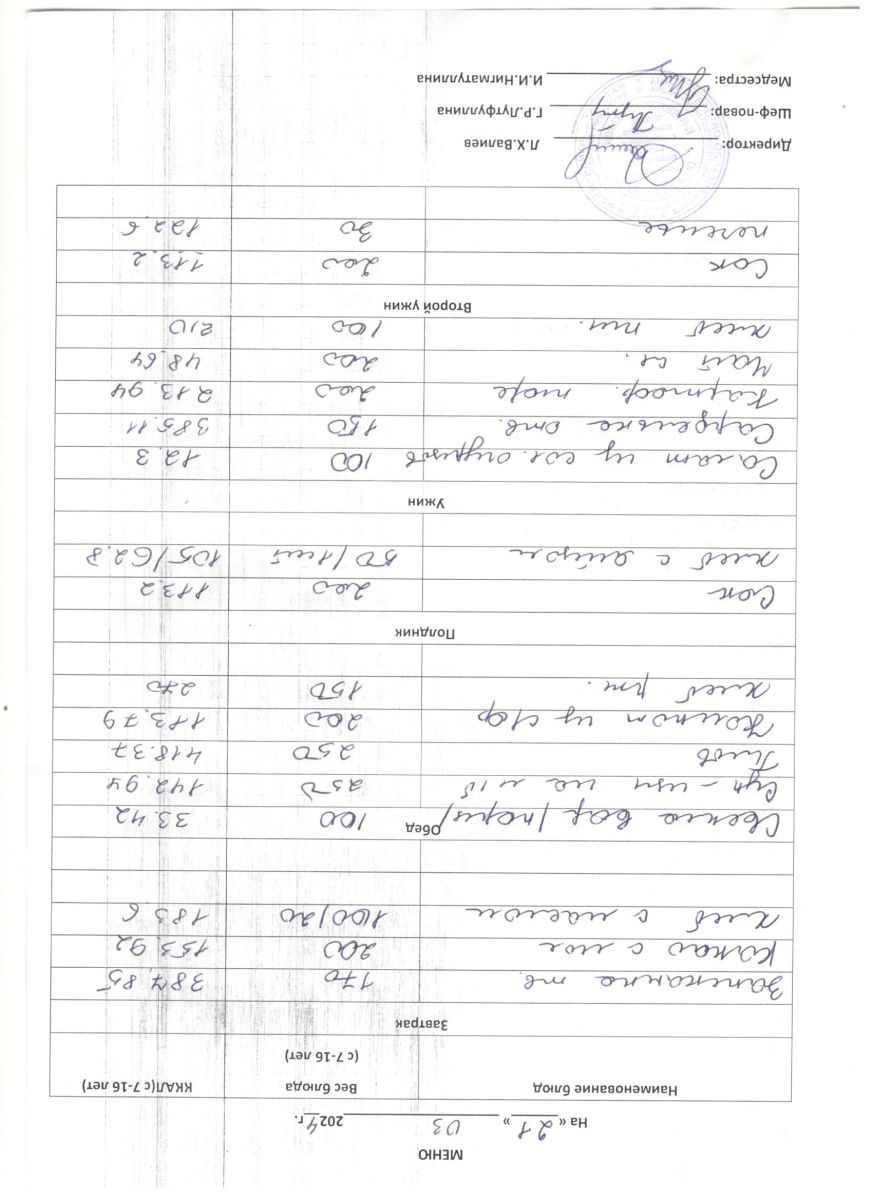 МЕНЮ
На « 21 » 03 2024 г.
Наименование блюд Вес блюда (с 7-16 лет) ККАЛ(с 7-16 лет)
Завтрак
Запеканка тв. 170 387,85
Какао с мол 200 153,92
хлеб с маслом 100/20 183.6
Обед
Свекла вар/порц/ 100 33.42
Суп-лапша на м/б 250 142.94
Плов 250 418.37
Компот из с/фр 200 113,79
хлеб рж. 150 270
Полдник
Сок 200 113,2
хлеб с яйцом 50/1шт 105/62.8
Ужин
Салат из сол. огурцов 100 12.3
Сарделька отв. 150 385.11
Картоф. пюре 200 213,94
Чай сл. 200 48,64
хлеб пш. 100 210
Второй ужин
Сок 200 113,2
печенье 30 122.6
Директор: Л.Х.Валиев
Шеф-повар: Г.Р.Лутфуллина
Медсестра: И.И.Нигматуллина